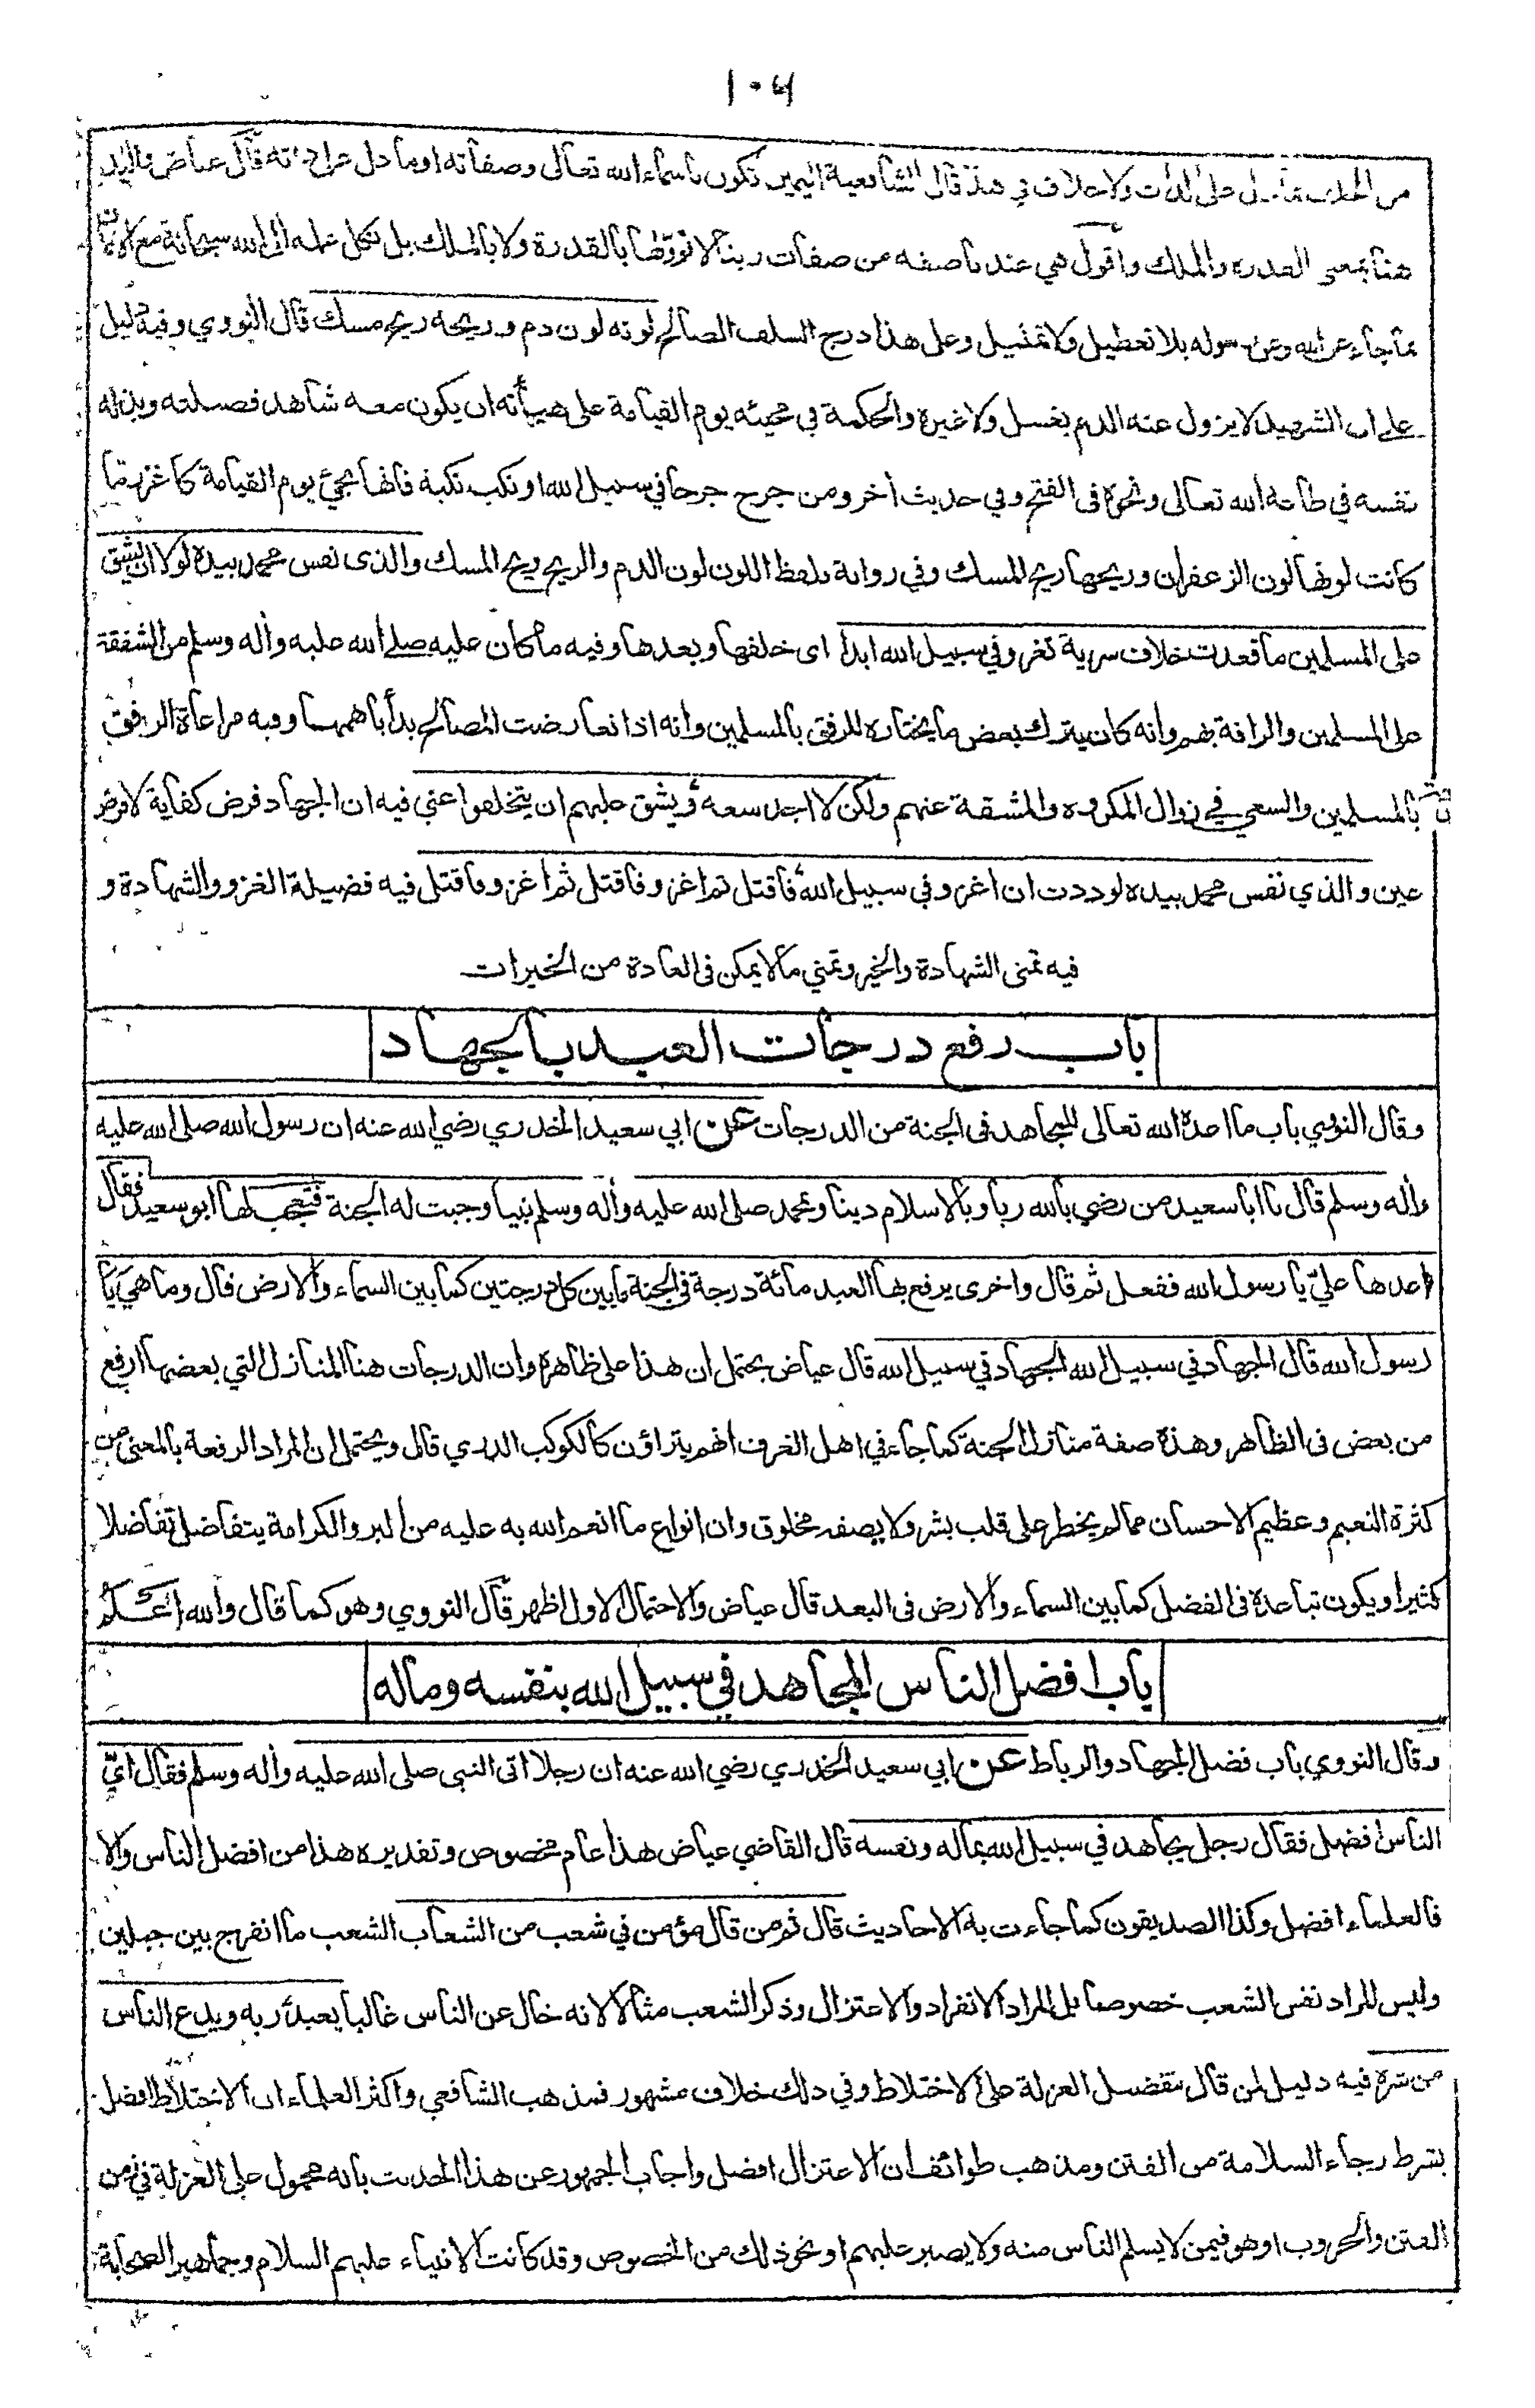 ١٠٦
من الحلف بما دل على الذات ولاخلاف في هذا قال الشافعية اليمين تكون باسماء الله تعالى وصفاته اوما دل على ذاته قال عياض واليد
هنا بمعنى القدرة والملك واقول هي عندنا صفه من صفات ربنا لا نؤولها بالقدرة ولا بالملك بل نكل علمه الى الله سبحانه مع الايمان
بما جاء عن الله وعن رسوله بلا تعطيل ولا تمثيل وعلى هذا درج السلف الصالح لونه لون دم وريحه ريح مسك قال النووي وفيه دليل
على ان الشهيد لا يزول عنه الدم بغسل ولا غيره والحكمة في مجيئه يوم القيامة على هيأته ان يكون معه شاهد فضيلته وبذله
نفسه في طاعة الله تعالى ونحوه فى الفتح وفي حديث اخر ومن جرح جرحا في سبيل الله او نكب نكبة فانها تجيء يوم القيامة كاغزر ما
كانت لونها لون الزعفران وريحها ريح المسك وفي رواية بلفظ اللون لون الدم والريح ريح المسك والذى نفس محمد بيده لولا ان يشق
على المسلمين ما قعدت خلاف سرية تغزو في سبيل الله ابدا اى خلفها وبعدها وفيه ما كان عليه صلى الله عليه وأله وسلم من الشفقة
على المسلمين والرافة بهم وانه كان يترك بعض ما يختاره للرفق بالمسلمين وانه اذا تعارضت المصالح بدأ باهمها وفيه مراعاة الرفق
بالمسلمين والسعي في زوال المكروه والمشقة عنهم ولكن لا اجد سعه ويشق عليهم ان يتخلفوا عني فيه ان الجهاد فرض كفاية لا فرض
عين والذي نفس محمد بيده لوددت ان اغزو في سبيل الله فاقتل ثم اغزو فاقتل ثم اغزو فاقتل فيه فضيلة الغزو والشهادة و
فيه تمنى الشهادة والخير وتمني ما لا يمكن فى العادة من الخيرات
باب رفع درجات العبد بالجهاد
وقال النووي باب ما اعده الله تعالى للمجاهد فى الجنة من الدرجات عن ابي سعيد الخدري رضي الله عنه ان رسول الله صلى الله عليه
وأله وسلم قال يا ابا سعيد من رضي بالله ربا وبالاسلام دينا وبمحمد صلى الله عليه وأله وسلم نبيا وجبت له الجنة فتعجب لها ابو سعيد فقال
اعدها عليّ يا رسول الله ففعل ثم قال واخرى يرفع بها العبد مائة درجة فى الجنة ما بين كل درجتين كما بين السماء والارض قال وما هي يا
رسول الله قال الجهاد في سبيل الله الجهاد في سبيل الله قال عياض يحتمل ان هذا على ظاهره وان الدرجات هنا المنازل التي بعضها ارفع
من بعض فى الظاهر وهذه صفة منازل الجنة كما جاء في اهل الغرف انهم يتراؤن كالكوكب الدري قال ويحتمل ان المراد الرفعة بالمعنى من
كثرة النعيم وعظيم الاحسان مما لم يخطر على قلب بشر ولا يصفه مخلوق وان انواع ما انعم الله به عليه من البر والكرامة يتفاضل تفاضلا
كثيرا ويكون تباعده فى الفضل كما بين السماء والارض فى البعد قال عياض والاحتمال الاول اظهر قال النووي وهو كما قال والله اعلم
باب افضل الناس المجاهد في سبيل الله بنفسه وماله
وقال النووي باب فضل الجهاد والرباط عن ابي سعيد الخدري رضي الله عنه ان رجلا اتى النبي صلى الله عليه وأله وسلم فقال ايّ
الناس افضل فقال رجل يجاهد في سبيل الله بماله ونفسه قال القاضي عياض هذا عام مخصوص وتقديره هذا من افضل الناس والا
فالعلماء افضل وكذا الصديقون كما جاءت به الاحاديث قال ثم من قال مؤمن في شعب من الشعاب الشعب ما انفرج بين جبلين
وليس المراد نفس الشعب خصوصا بل المراد الانفراد والاعتزال وذكر الشعب مثالا لانه خال عن الناس غالبا يعبد ربه ويدع الناس
من شره فيه دليل لمن قال بتفضيل العزلة على الاختلاط وفي ذلك خلاف مشهور فمذهب الشافعي واكثر العلماء ان الاختلاط افضل
بشرط رجاء السلامة من الفتن ومذهب طوائف ان الاعتزال افضل واجاب الجمهور عن هذا الحديث بانه محمول على العزلة في زمن
الفتن والحروب او هو فيمن لا يسلم الناس منه ولا يصبر عليهم او نحو ذلك من الخصوص وقد كانت الانبياء عليهم السلام وجماهير الصحابة